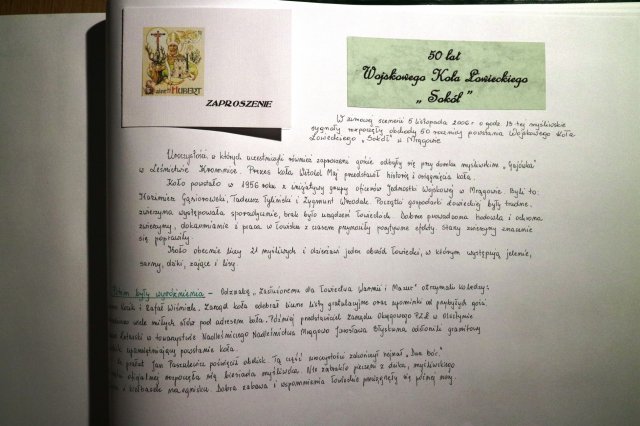 Saint HUBERT
ZAPROSZENIE
50 lat
Wojskowego Koła Łowieckiego
„Sokół”
W zimowej scenerii 5 listopada 2006 r o godz. 13-tej myśliwskie
sygnały rozpoczęły obchody 50 rocznicy powstania Wojskowego Koła
Łowieckiego „Sokół” w Mrągowie
Uroczystości, w których uczestniczyli również zaproszeni goście odbyły się przy domku myśliwskim „Gajówka”
w Leśnictwie Krzemnice. Prezes koła Witold Maj przedstawił historię i osiągnięcia koła.
Koło powstało w 1956 roku z inicjatywy grupy oficerów Jednostki Wojskowej w Mrągowie. Byli to:
Kazimierz Gąsiorowski, Tadeusz Tyliński i Zygmunt Wrzodak. Początki gospodarki łowieckiej były trudne,
zwierzyna występowała sporadycznie, brak było urządzeń łowieckich. Dobrze prowadzona hodowla i ochrona
zwierzyny, dokarmianie i praca w łowisku z czasem przyniosły pozytywne efekty. Stany zwierzyny znacznie
się poprawiły.
Koło obecnie liczy 21 myśliwych i dzierżawi jeden obwód łowiecki, w którym występują jelenie,
sarny, dziki, zające i lisy.
Potem były wyróżnienia – Odznakę „Zasłużonemu dla Łowiectwa Warmii i Mazur” otrzymali koledzy:
Kozik i Rafał Wiśniak. Zarząd koła odebrał liczne listy gratulacyjne oraz upominki od przybyłych gości
wiele miłych słów pod adresem koła. Później przedstawiciel Zarządu Okręgowego PZŁ w Olsztynie
w towarzystwie Nadleśniczego Nadleśnictwa Mrągowo Jarosława Błyskuna odsłonili granitowy
upamiętniający powstanie koła.
prałat Jan Paszulewicz poświęcił obelisk. Tą część uroczystości zakończył hejnał „Darz bór.”
oficjalnej rozpoczęła się biesiada myśliwska. Nie zabrakło pieczeni z dzika, myśliwskiego
i kiełbasek z ogniska. Dobra zabawa i wspomnienia łowieckie przeciągnęły się późnej nocy.